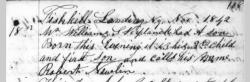 Fishkill Landing Ny. Nov. 1842
Wm. Williams S. Rapland had a Son
Born this Evening it is his 2d Child
and first Son and calls his Name
Robert Newlin